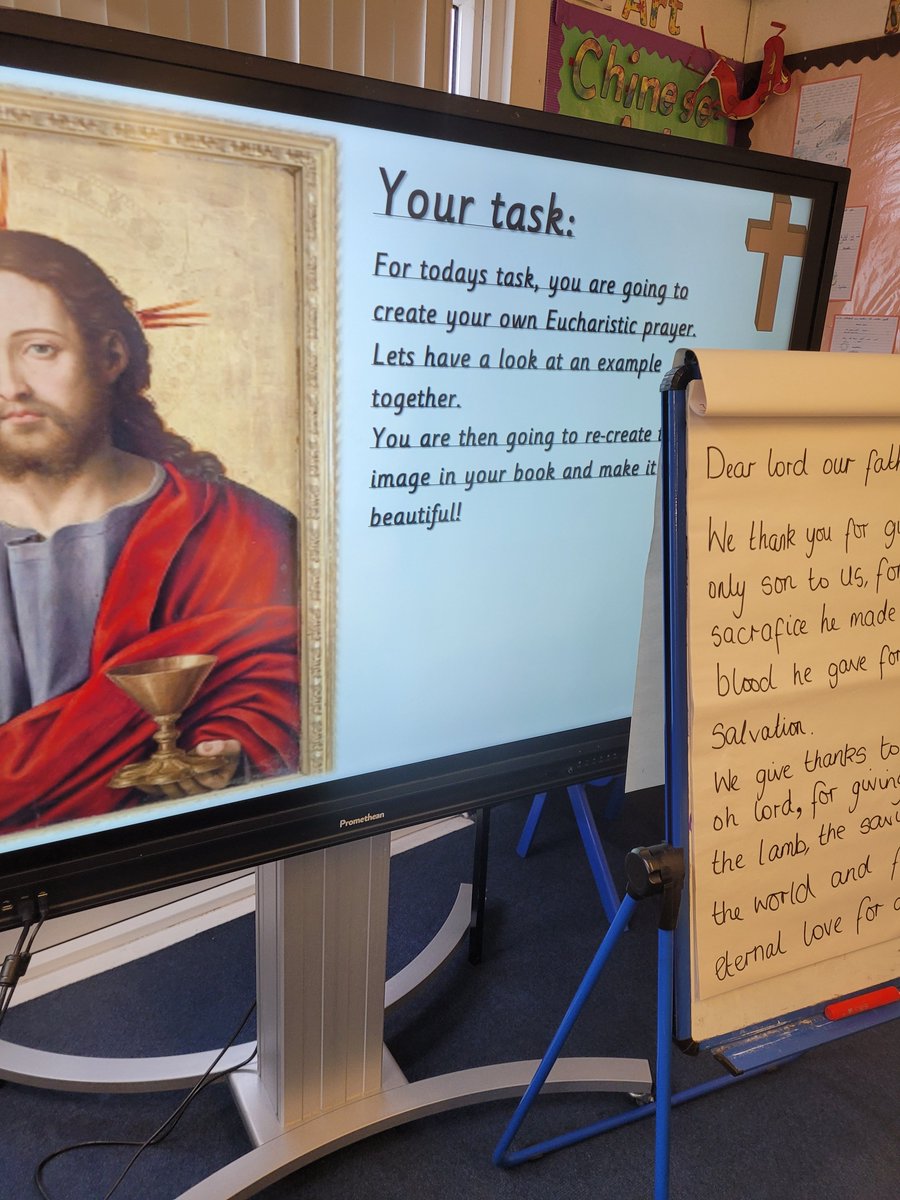 Art
Chinese
Your task:
For todays task, you are going to
create your own Eucharistic prayer.
Lets have a look at an example
together.
You are then going to re-create
image in your book and make it
beautiful!
Promethean
Dear lord our
We thank you for
only son to us, for
sacrafice he made
blood he gave for
salvation.
We give thanks to
oh lord, for giving
the lamb, the
the world and
eternal love for